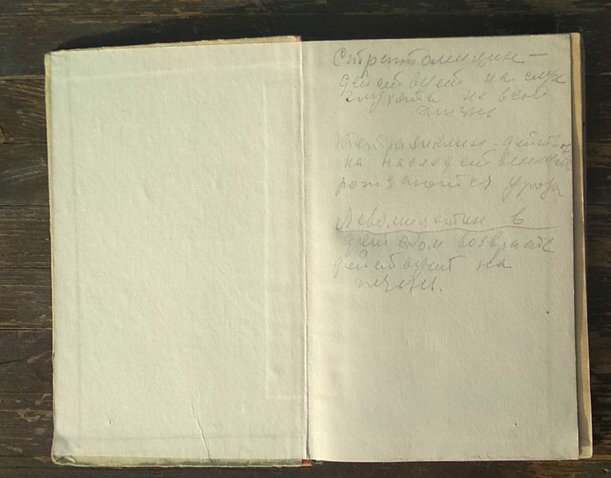 Стрептомицин –
действует на слух
глухота на всю
жизнь
Тетрациклин - действ.
на наследственность
рождаются уроды
Левомицетин в
детском возрасте
действует на
печень.